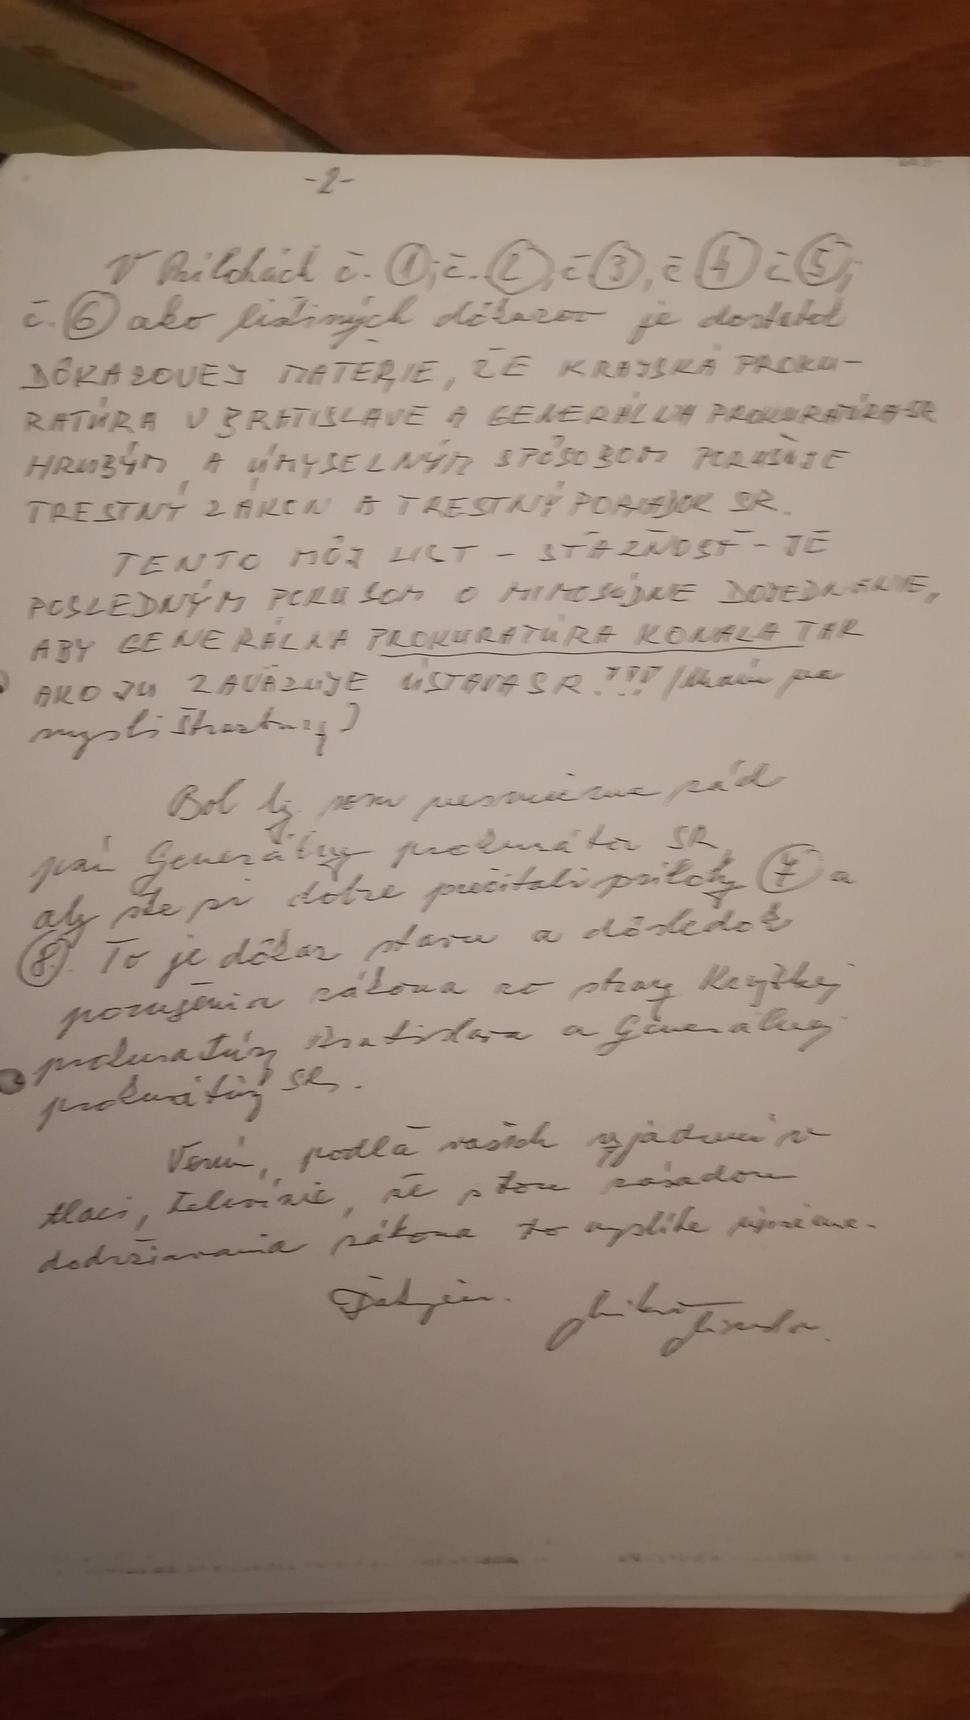 -2-
V Prílohách č. 1, č. 2, č 3, č 4 č 5,
č. 6 ako listinných dôkazov je dostatok
DÔKAZOVEJ MATÉRIE, ŽE KRAJSKÁ PROKU-
RATÚRA V BRATISLAVE A GENERÁLNA PROKURATÚRA SR
HRUBÝM A ÚMYSELNÝM SPÔSOBOM PORUŠUJE
TRESTNÝ ZÁKON A TRESTNÝ PORIADOK SR.
TENTO MÔJ LIST - STÄŽNOSŤ - JE
POSLEDNÝM POKUSOM O MIMOSÚDNE DOJEDNANIE,
ABY GENERÁLNA PROKURATÚRA KONALA TAK
AKO JU ZAVÄZUJE ÚSTAVA SR!!! /Mám na
mysli
Bol by som nesmierne rád
pán Generálny prokurátor SR,
aby ste si dobre prečítali prílohy 7 a
8. To je dôkaz stavu a dôsledok
porušenia zákona zo strany Krajskej
prokuratúry Bratislava a Generálnej
prokuratúry SR.
Verím, podľa vašich vyjadrení v
tlači, televízie, že s tou zásadou
dodržiavania zákona to myslíte úprimne.
Ďakujem.